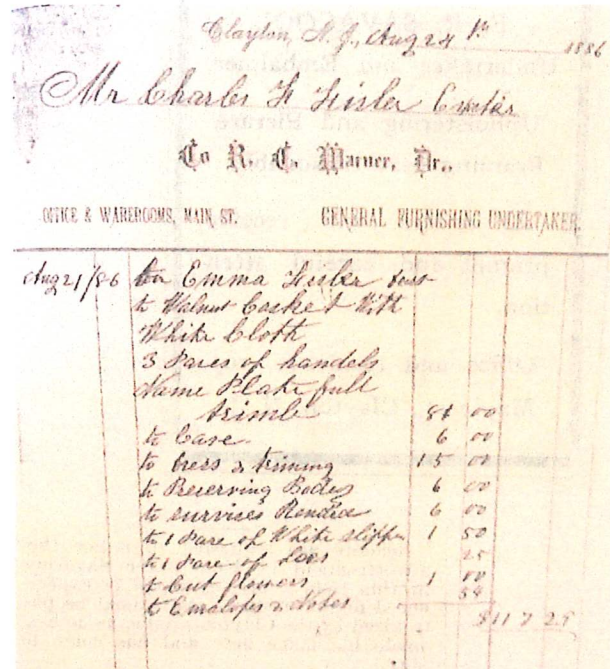 Clayton, N. J., Aug 24th 1886
Mr Charles F Fisler
To R. C. Warner, Dr.,
OFFICE & WAREROOMS, MAIN ST. GENERAL FURNISHING UNDERTAKER.
Aug 21/86 Emma Fisler
to Walnut Casket With
White Cloth
3 Pares of handels
Name Plate full
trimb 81 00
to Case 6 00
to 15 00
to Preserving Bodey 6 00
to survices Rendied 6 00
to 1 Pare of White slippr 1 50
to 1 Pare of 25
to Cut flowers 1 00
to Envalopes & Notes 54
$117 29